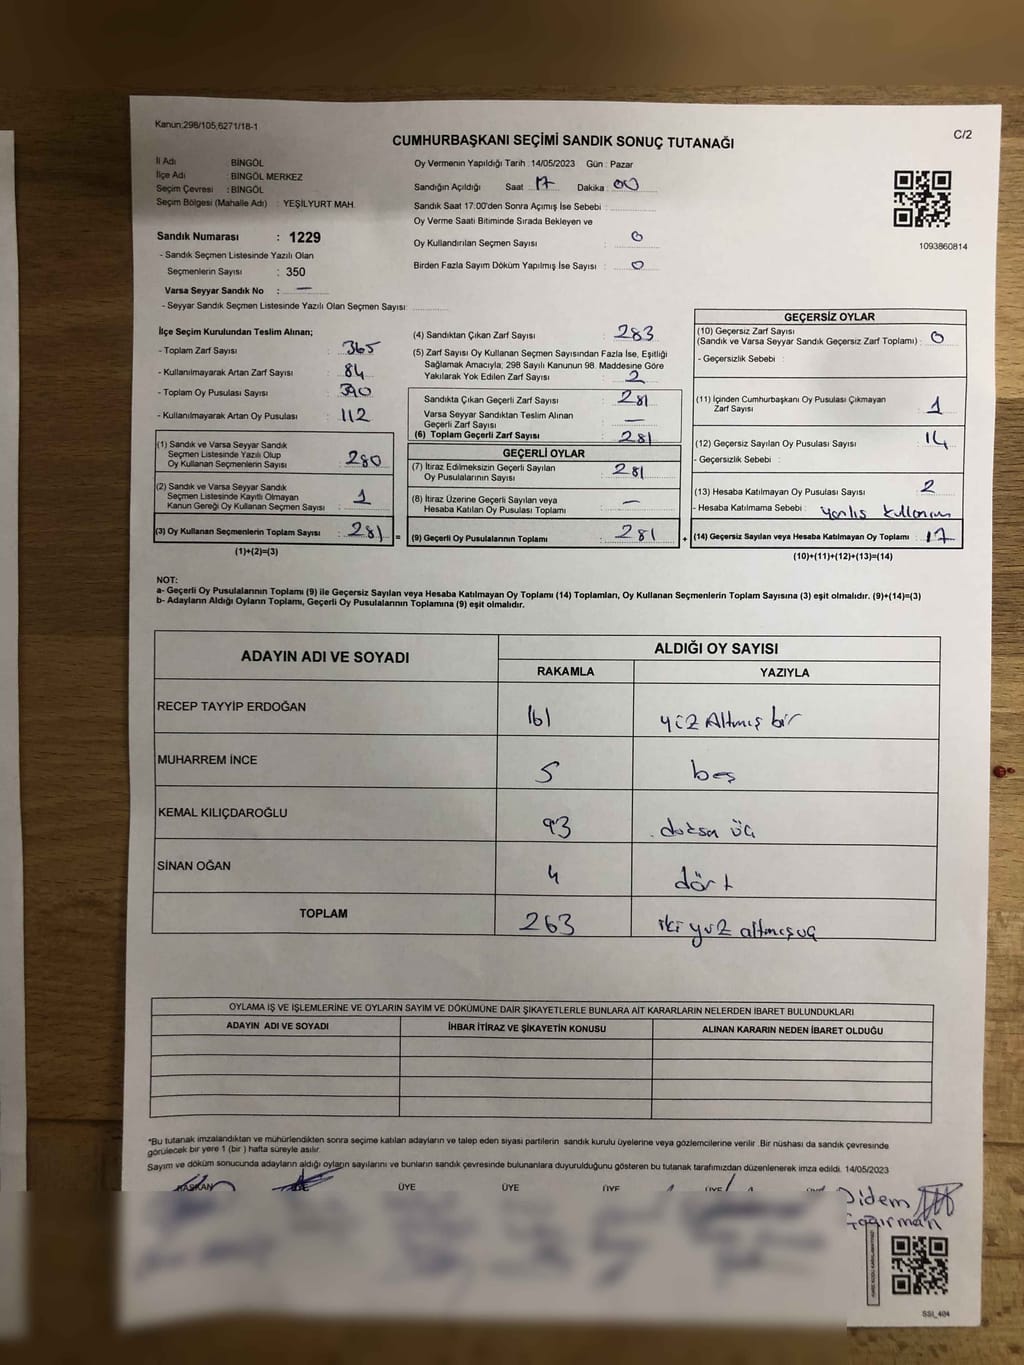 Kanun;298/105,6271/18-1
C/2
CUMHURBAŞKANI SEÇİMİ SANDIK SONUÇ TUTANAĞI
İl Adı : BİNGÖL
İlçe Adı : BİNGÖL MERKEZ
Seçim Çevresi : BİNGÖL
Seçim Bölgesi (Mahalle Adı) : YEŞİLYURT MAH.
Oy Vermenin Yapıldığı Tarih : 14/05/2023 Gün : Pazar
Sandığın Açıldığı Saat : 17 Dakika : 00
Sandık Saat 17:00'den Sonra Açımış İse Sebebi :
Oy Verme Saati Bitiminde Sırada Bekleyen ve
Oy Kullandırılan Seçmen Sayısı : 0
Birden Fazla Sayım Döküm Yapılmış İse Sayısı : 0
1093860814
Sandık Numarası : 1229
- Sandık Seçmen Listesinde Yazılı Olan
Seçmenlerin Sayısı : 350
Varsa Seyyar Sandık No : —
- Seyyar Sandık Seçmen Listesinde Yazılı Olan Seçmen Sayısı:
İlçe Seçim Kurulundan Teslim Alınan;
- Toplam Zarf Sayısı : 365
- Kullanılmayarak Artan Zarf Sayısı : 84
- Toplam Oy Pusulası Sayısı : 390
- Kullanılmayarak Artan Oy Pusulası : 112
(1) Sandık ve Varsa Seyyar Sandık
Seçmen Listesinde Yazılı Olup
Oy Kullanan Seçmenlerin Sayısı : 280
(2) Sandık ve Varsa Seyyar Sandık
Seçmen Listesinde Kayıtlı Olmayan
Kanun Gereği Oy Kullanan Seçmen Sayısı : 1
(3) Oy Kullanan Seçmenlerin Toplam Sayısı : 281 =
(1)+(2)=(3)
(4) Sandıktan Çıkan Zarf Sayısı : 283
(5) Zarf Sayısı Oy Kullanan Seçmen Sayısından Fazla İse, Eşitliği
Sağlamak Amacıyla; 298 Sayılı Kanunun 98. Maddesine Göre
Yakılarak Yok Edilen Zarf Sayısı : 2
Sandıkta Çıkan Geçerli Zarf Sayısı : 281
Varsa Seyyar Sandıktan Teslim Alınan
Geçerli Zarf Sayısı : —
(6) Toplam Geçerli Zarf Sayısı : 281
GEÇERLİ OYLAR
(7) İtiraz Edilmeksizin Geçerli Sayılan
Oy Pusulalarının Sayısı : 281
(8) İtiraz Üzerine Geçerli Sayılan veya
Hesaba Katılan Oy Pusulası Toplamı : —
(9) Geçerli Oy Pusulalarının Toplamı : 281 +
GEÇERSİZ OYLAR
(10) Geçersiz Zarf Sayısı
(Sandık ve Varsa Seyyar Sandık Geçersiz Zarf Toplamı) : 0
- Geçersizlik Sebebi :
(11) İçinden Cumhurbaşkanı Oy Pusulası Çıkmayan
Zarf Sayısı : 1
(12) Geçersiz Sayılan Oy Pusulası Sayısı : 14
- Geçersizlik Sebebi :
(13) Hesaba Katılmayan Oy Pusulası Sayısı : 2
- Hesaba Katılmama Sebebi : yanlış kullanım
(14) Geçersiz Sayılan veya Hesaba Katılmayan Oy Toplamı : 17
(10)+(11)+(12)+(13)=(14)
NOT:
a- Geçerli Oy Pusulalarının Toplamı (9) ile Geçersiz Sayılan veya Hesaba Katılmayan Oy Toplamı (14) Toplamları, Oy Kullanan Seçmenlerin Toplam Sayısına (3) eşit olmalıdır. (9)+(14)=(3)
b- Adayların Aldığı Oyların Toplamı, Geçerli Oy Pusulalarının Toplamına (9) eşit olmalıdır.
ADAYIN ADI VE SOYADI
ALDIĞI OY SAYISI
RAKAMLA YAZIYLA
RECEP TAYYİP ERDOĞAN 161 yüz Altmış bir
MUHARREM İNCE 5 beş
KEMAL KILIÇDAROĞLU 93 doksa üç
SİNAN OĞAN 4 dört
TOPLAM 263 iki yüz altmışüç
OYLAMA İŞ VE İŞLEMLERİNE VE OYLARIN SAYIM VE DÖKÜMÜNE DAİR ŞİKAYETLERLE BUNLARA AİT KARARLARIN NELERDEN İBARET BULUNDUKLARI
ADAYIN ADI VE SOYADI İHBAR İTİRAZ VE ŞİKAYETİN KONUSU ALINAN KARARIN NEDEN İBARET OLDUĞU
*Bu tutanak imzalandıktan ve mühürlendikten sonra seçime katılan adayların ve talep eden siyasi partilerin sandık kurulu üyelerine veya gözlemcilerine verilir .Bir nüshası da sandık çevresinde
görülecek bir yere 1 (bir ) hafta süreyle asılır.
Sayım ve döküm sonucunda adayların aldığı oyların sayılarını ve bunların sandık çevresinde bulunanlara duyurulduğunu gösteren bu tutanak tarafımızdan düzenlenerek imza edildi. 14/05/2023
BAŞKAN ÜYE ÜYE ÜYE ÜYE
Didem
SSI_404